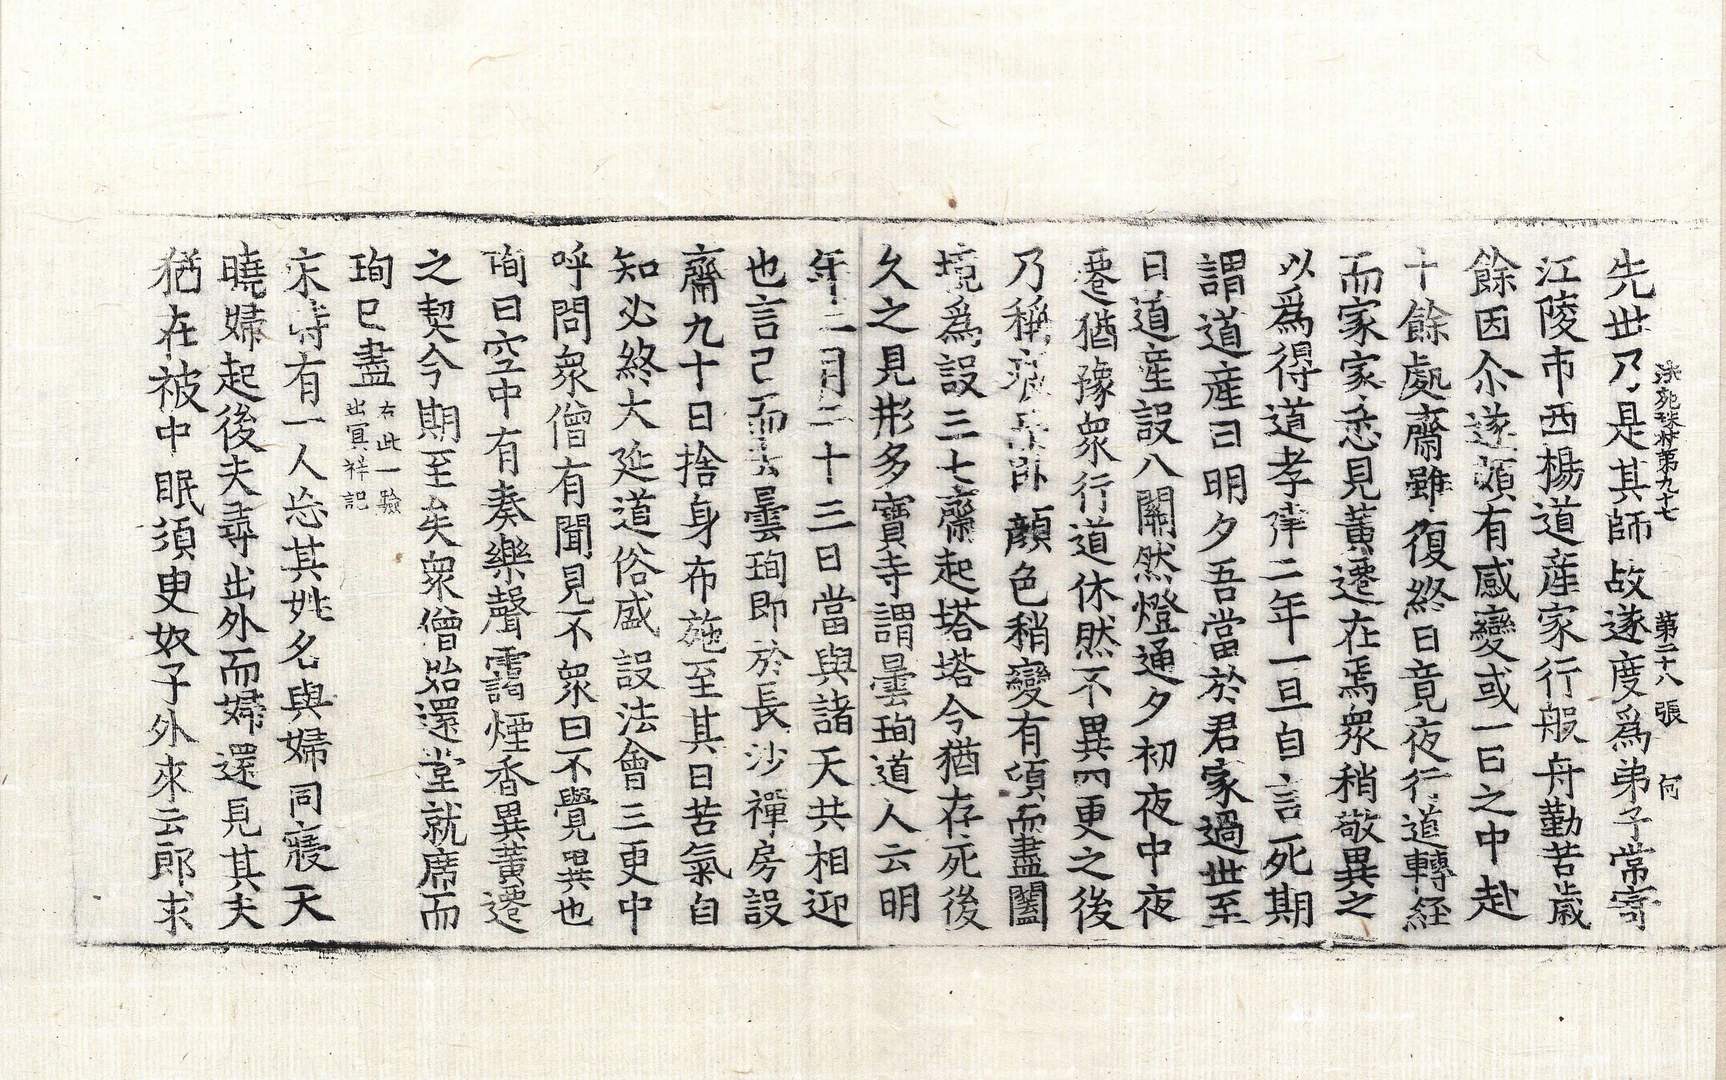 法苑珠林第九十七 第二十八張 何
先世乃是其師故遂度爲弟子常寄
江陵市西楊道産家行般舟勤苦歲
餘因尒遂頗有感變或一日之中赴
十餘處齋雖復終日竟夜行道轉経
而家家悉見黃遷在焉衆稍敬異之
以爲得道孝建二年一旦自言死期
謂道産曰明夕吾當於君家過世至
日道産設八關然燈通夕初夜中夜
遷猶豫衆行道休然不異四更之後
乃稱疲而臥顔色稍變有頃而盡闔
境爲設三七齋起塔塔今猶存死後
久之見形多寶寺謂曇珣道人云明
年二月二十三日當與諸天共相迎
也言已而去曇珣即於長沙禪房設
齋九十日捨身布施至其日苦氣自
知必終大延道俗盛設法會三更中
呼問衆僧有聞見不衆曰不覺異也
珣曰空中有奏樂聲靄煙香異黃遷
之契今期至矣衆僧始還堂就席而
珣已盡 右此一驗出冥祥記
宋時有一人忘其姓名與婦同寢天
曉婦起後夫尋出外而婦還見其夫
猶在被中眠須臾奴子外來云郎求